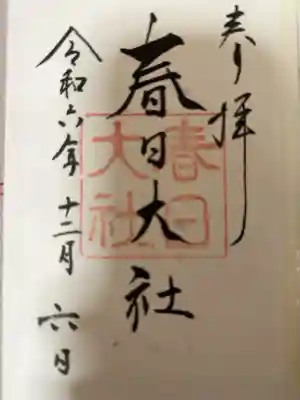 奉拝
春日大社
春日大社
令和六年十二月六日